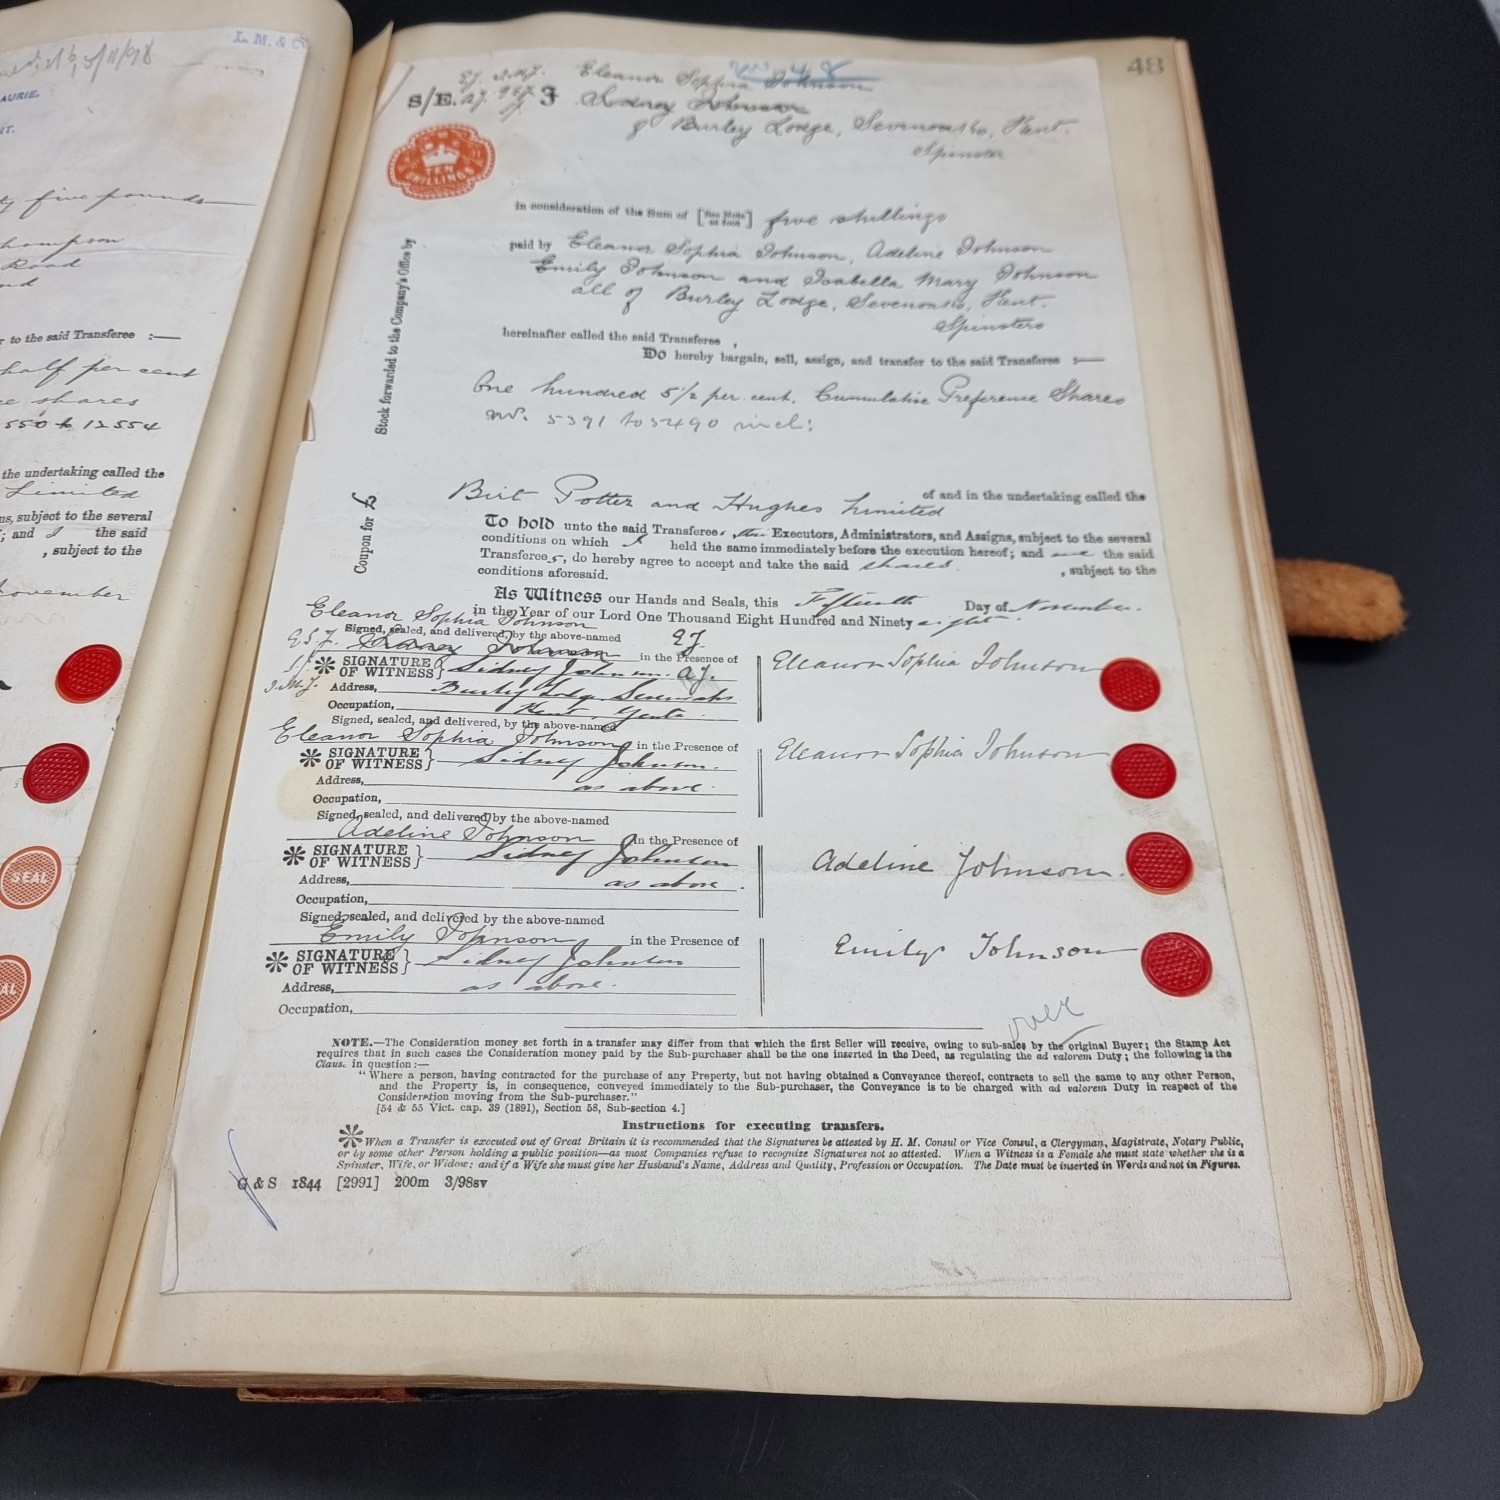 L. M. & Co
5/11/98
AURIE.
NT.
ty five pounds
hompson
Road
nd
r to the said Transferee :—
half per cent
e shares
550 to 12554
the undertaking called the
Limited
ns, subject to the several
; and I the said
, subject to the
November
SEAL
AL
48
No 48
E.J. I.M.J. Eleanor Sophia Johnson
S/E. A.J. I Sidney Johnson
of Burley Lodge, Sevenoaks, Kent.
Spinster
TEN
SHILLINGS
in consideration of the Sum of [See Note at foot] five shillings
paid by Eleanor Sophia Johnson, Adeline Johnson
Emily Johnson and Isabella Mary Johnson
all of Burley Lodge, Sevenoaks, Kent.
Spinsters
Stock forwarded to the Company's Office by
hereinafter called the said Transferee ,
Do hereby bargain, sell, assign, and transfer to the said Transferee :—
One hundred 5½ per cent. Cumulative Preference Shares
No. 5391 to 5490 incl:
Coupon for £
of and in the undertaking called the
Birt Potter and Hughes Limited
To hold unto the said Transferees their Executors, Administrators, and Assigns, subject to the several
conditions on which I held the same immediately before the execution hereof; and we the said
Transferees, do hereby agree to accept and take the said shares. , subject to the
conditions aforesaid.
As Witness our Hands and Seals, this Fifteenth Day of November.
in the Year of our Lord One Thousand Eight Hundred and Ninety eight.
Eleanor Sophia Johnson
Signed, sealed, and delivered, by the above-named E.J.
E.S.J. Sidney Johnson in the Presence of
✻ SIGNATURE OF WITNESS } Sidney Johnson. A.J. Eleanor Sophia Johnson
I.M.J. Address, Burley Lodge Sevenoaks
Occupation, Kent, Gent.
Signed, sealed, and delivered, by the above-named
Eleanor Sophia Johnson, in the Presence of
✻ SIGNATURE OF WITNESS } Sidney Johnson. Eleanor Sophia Johnson
Address, as above.
Occupation,
Signed, sealed, and delivered by the above-named
Adeline Johnson in the Presence of
✻ SIGNATURE OF WITNESS } Sidney Johnson Adeline Johnson.
Address, as above.
Occupation,
Signed, sealed, and delivered by the above-named
Emily Johnson, in the Presence of
✻ SIGNATURE OF WITNESS } Sidney Johnson Emily Johnson
Address, as above.
Occupation,
over
NOTE.—The Consideration money set forth in a transfer may differ from that which the first Seller will receive, owing to sub-sales by the original Buyer; the Stamp Act
requires that in such cases the Consideration money paid by the Sub-purchaser shall be the one inserted in the Deed, as regulating the ad valorem Duty; the following is the
Claus. in question:—
"Where a person, having contracted for the purchase of any Property, but not having obtained a Conveyance thereof, contracts to sell the same to any other Person,
and the Property is, in consequence, conveyed immediately to the Sub-purchaser, the Conveyance is to be charged with ad valorem Duty in respect of the
Consideration moving from the Sub-purchaser."
[54 & 55 Vict. cap. 39 (1891), Section 58, Sub-section 4.]
Instructions for executing transfers.
✻ When a Transfer is executed out of Great Britain it is recommended that the Signatures be attested by H. M. Consul or Vice Consul, a Clergyman, Magistrate, Notary Public,
or by some other Person holding a public position—as most Companies refuse to recognize Signatures not so attested. When a Witness is a Female she must state whether she is a
Spinster, Wife, or Widow; and if a Wife she must give her Husband's Name, Address and Quality, Profession or Occupation. The Date must be inserted in Words and not in Figures.
G & S 1844 [2991] 200m 3/98sv